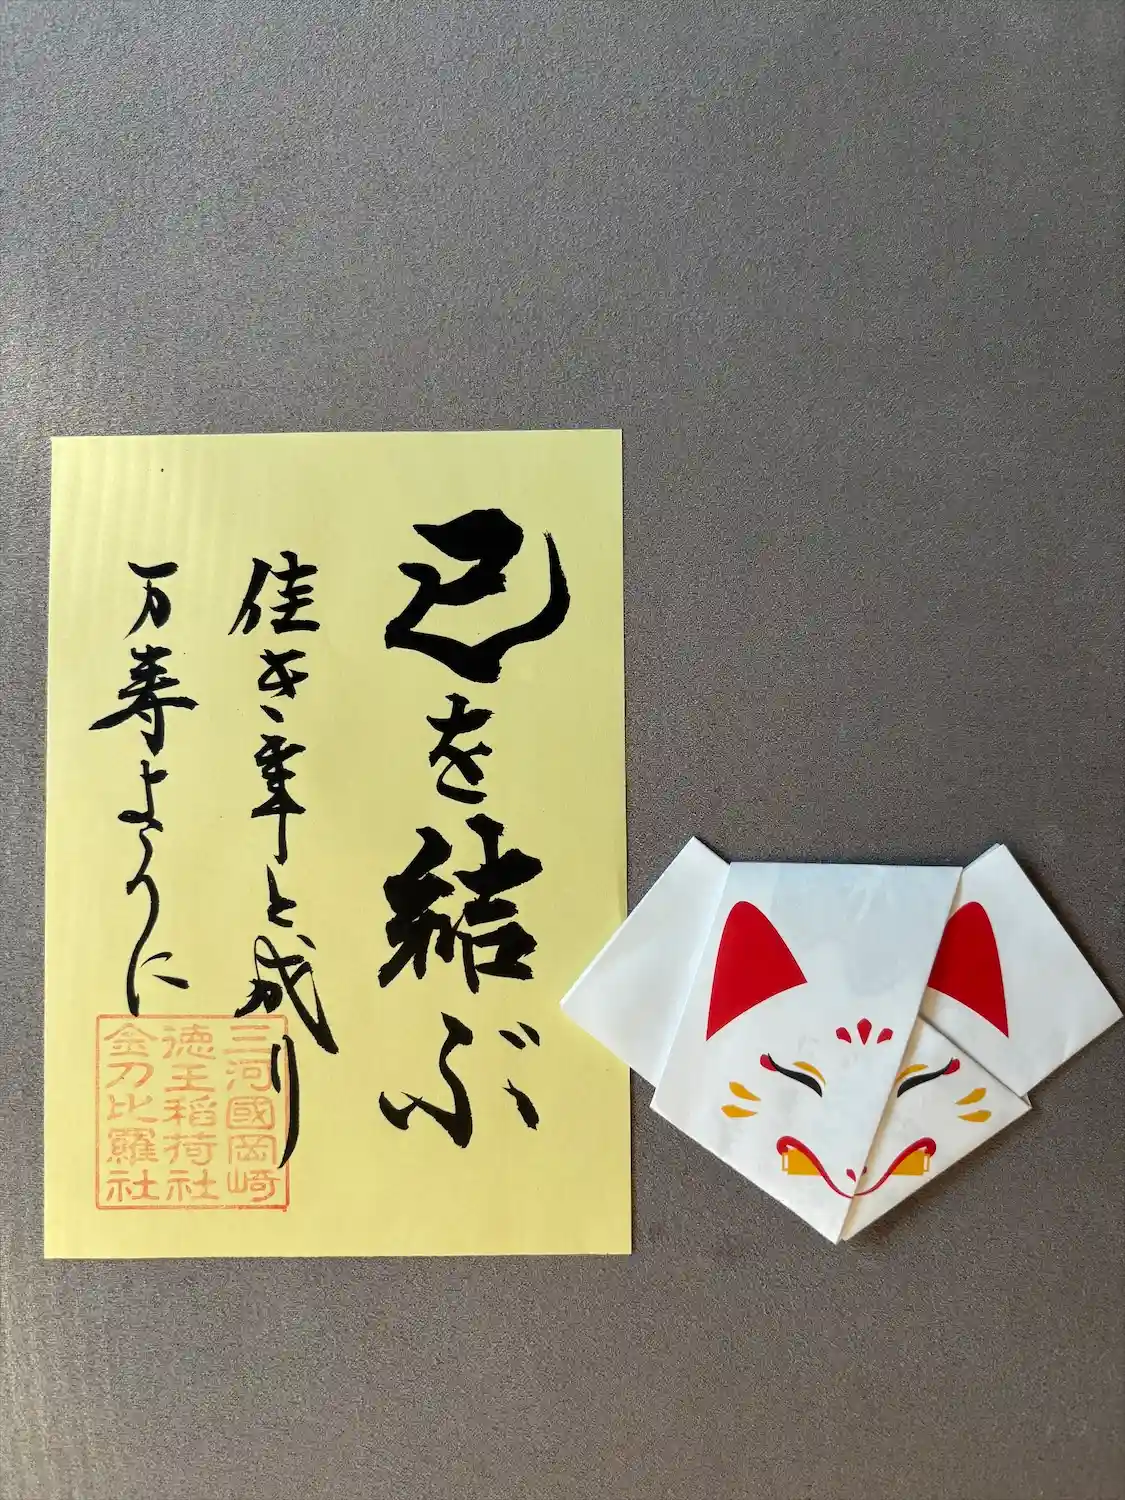 己を結ぶ
佳き年と成り
万寿ように
三河國岡崎
徳王稲荷社
金刀比羅社